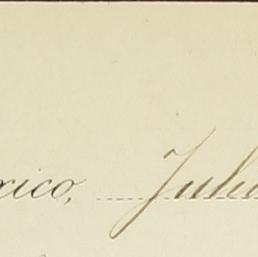 xico, Julio